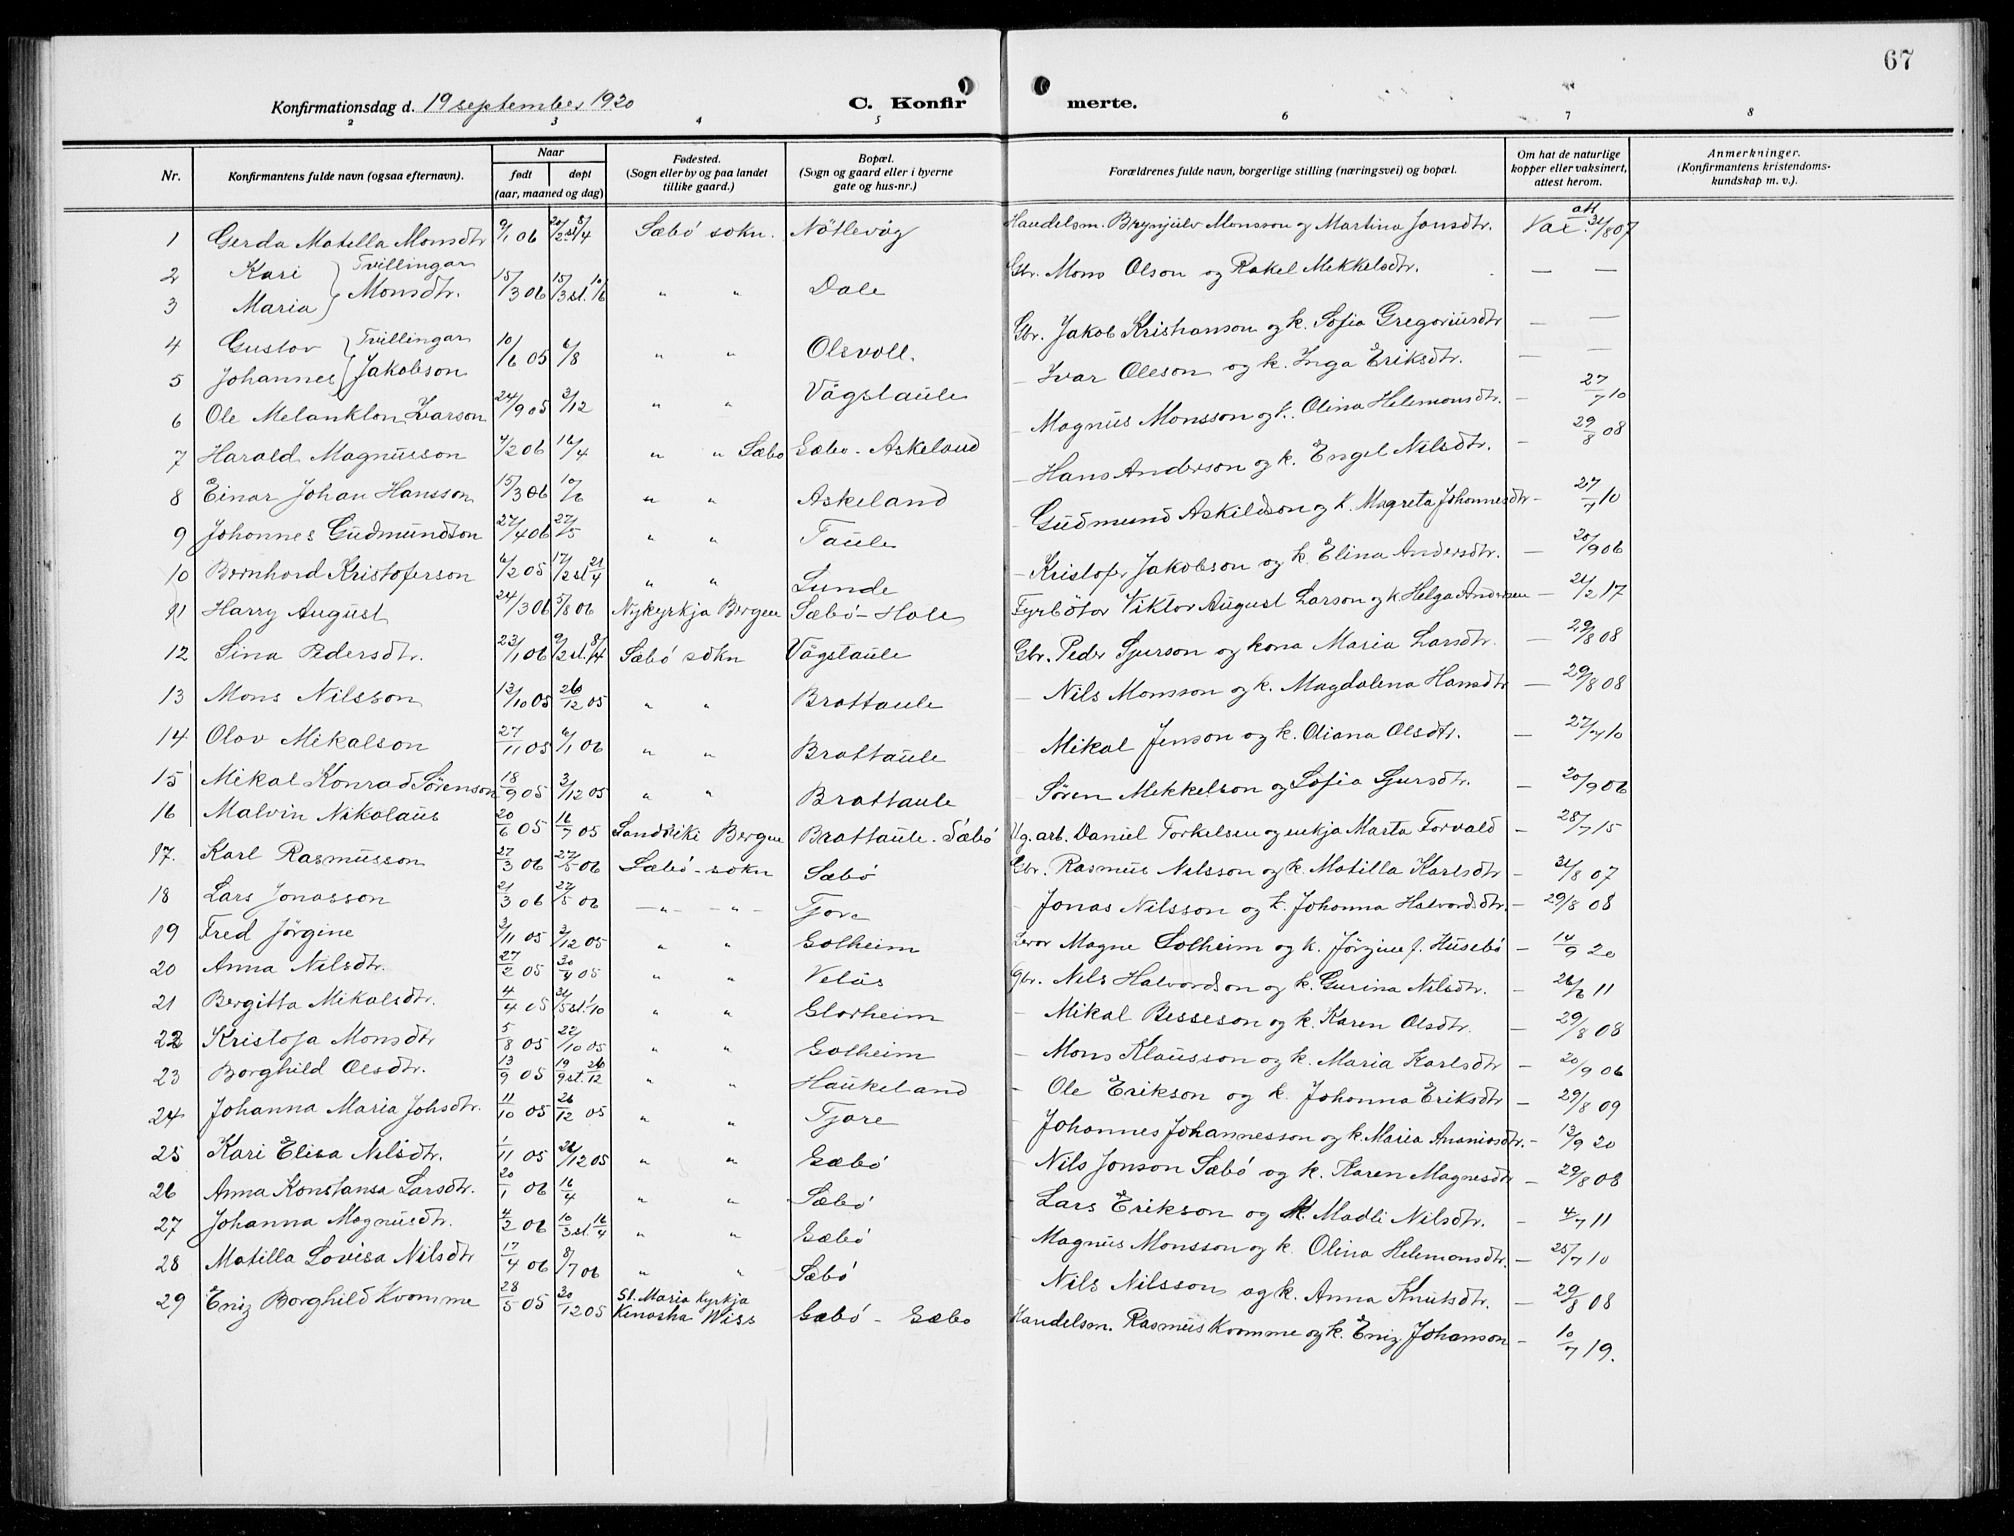 67
Konfirmationsdag d. 19 september 1920 C. Konfir merte.
2 3 4 5 6 7 8
Nr. Konfirmantens fulde navn (ogsaa efternavn). Naar født døpt (aar, maaned og dag) Fødested. (Sogn eller by og paa landet tillike gaard.) Bopæl. (Sogn og gaard eller i byerne gate og hus-nr.) Forældrenes fulde navn, borgerlige stilling (næringsvei) og bopæl. Om hat de naturlige kopper eller vaksinert, attest herom. Anmerkninger. (Konfirmantens kristendoms-kundskap m. v.).
1 Gerda Matella Monsdtr 9/1 06 20/2 st 8/4 Sæbö sokn. Nötlevåg Handelsm. Brynjulv Monsson og Martina Jonsdtr. Vac. att 31/8 07
2 Kari } Tvillingar
3 Maria } Monsdtr. 15/3 06 15/3 st. 10/6 " " Dale Gbr. Mons Olson og Rakel Mekkelsdtr. — —
4 Gustav } Tvillingar
5 Johannes } Jakobson 10/6 05 6/8 " " Olsvoll. Gbr. Jakob Kristianson og k. Sofia Gregoriusdtr — —
6 Ole Melankton Ivarson 24/9 05 3/12 " " Vågstaule — Ivar Oleson og k. Inga Eriksdtr. — —
7 Harald Magnusson 4/2 06 16/4 " " Sæbö Sæbö - Askeland — Magnus Monsson og k. Olina Helemonsdtr. — 27/7 10
8 Einar Johan Hansson 15/3 06 10/6 " " Askeland — Hans Anderson og k. Engel Nilsdtr. — 29/8 08
9 Johannes Gudmundson 27/4 06 27/5 " " Taule — Gudmund Askildson og k. Magreta Johannesdtr — 27/7 10
10 Bernhard Kristoferson 6/2 05 17/2 st 21/4 " " Lunde — Kristofer Jakobson og k. Elina Andersdtr. — 20/9 06
11 Harry August 24/3 06 5/8 06 Nykyrkja Bergen Sæbö - Hole Fyrbötar Viktor August Larson og k Helga Andersen — 21/2 17
12 Sina Pedersdtr. 23/1 06 9/2 st. 8/4 Sæbö sokn Vågstaule Gbr. Peder Sjurson og kona Maria Larsdtr. — 29/8 08
13 Mons Nilsson 13/10 05 26/12 05 " " Brattaule — Nils Monsson og k. Magdalena Hansdtr — 29/8 08
14 Olav Mikalson 27/11 05 6/1 06 " " Brattaule — Mikal Jenson og k. Oliana Olsdtr. — 27/7 10
15 Mikal Konrad Sörenson 18/9 05 3/12 05 " " Brattaule — Sören Mekkelson og Sofia Sjursdtr. — 20/9 06
16 Malvin Nikolaus 20/6 05 16/7 05 Sandviki Bergen Brattaule - Sæbö Ug. arb. Daniel Torkelsen og enkja Marta Torvald — 28/7 15
17. Karl Rasmusson 27/3 06 27/5 06 Sæbö - sokn Sæbö Gbr. Rasmus Nilsson og k. Matilla Karlsdtr — 31/8 07
18 Lars Jonasson 21/3 06 27/5 06 — " — " — Tjore — Jonas Nilsson og k. Johanna Halvordsdtr. — 29/8 08
19 Fred Jörgine 3/11 05 3/12 05 " " Solheim Lærar Magne Solheim og k. Jörgine f. Husebö — 14/9 20
20 Anna Nilsdtr. 27/2 05 30/4 05 " " Velås Gbr. Nils Halvordson og k. Gurina Nilsdtr. — 26/6 11
21 Bergitta Mikalsdtr. 4/4 05 31/5 st. 1/10 " " Storheim — Mikal Besseson og k. Karen Olsdtr. — 29/8 08
22 Kristofa Monsdtr 5/8 05 22/10 05 " " Solheim — Mons Klausson og k. Maria Karlsdtr — 20/9 06
23 Borghild Olsdtr. 13/9 05 19/9 st. 26/12 " " Haukeland — Ole Erikson og k. Johanna Eriksdtr — 29/8 09
24 Johanna Maria Johsdtr. 11/10 05 26/12 05 " " Tjore — Johannes Johannesson og k. Maria Ananiasdtr. — 13/9 20
25 Kari Elisa Nilsdtr. 1/11 05 26/12 05 " " Sæbö — Nils Jonson Sæbö og k. Karen Magnesdtr — 29/8 08
26 Anna Konstansa Larsdtr. 20/1 06 16/4 " " Sæbö — Lars Erikson og k. Madli Nilsdtr. — 4/7 11
27 Johanna Magnusdtr. 4/2 06 10/3 st. 16/4 " " Sæbö — Magnus Monsson og k. Olina Helemonsdtr — 25/7 10
28 Matilla Lovisa Nilsdtr 17/4 06 8/7 06 " " Sæbö — Nils Nilsson og k. Anna Knutsdtr. — 29/8 08
29 Eniz Borghild Kvamme 28/5 05 30/12 05 St. Maria Kyrkja Kenosha Wiss Sæbö - Sæbö Handelsm. Rasmus Kvamme og k. Eniz Johanson — 10/7 19.